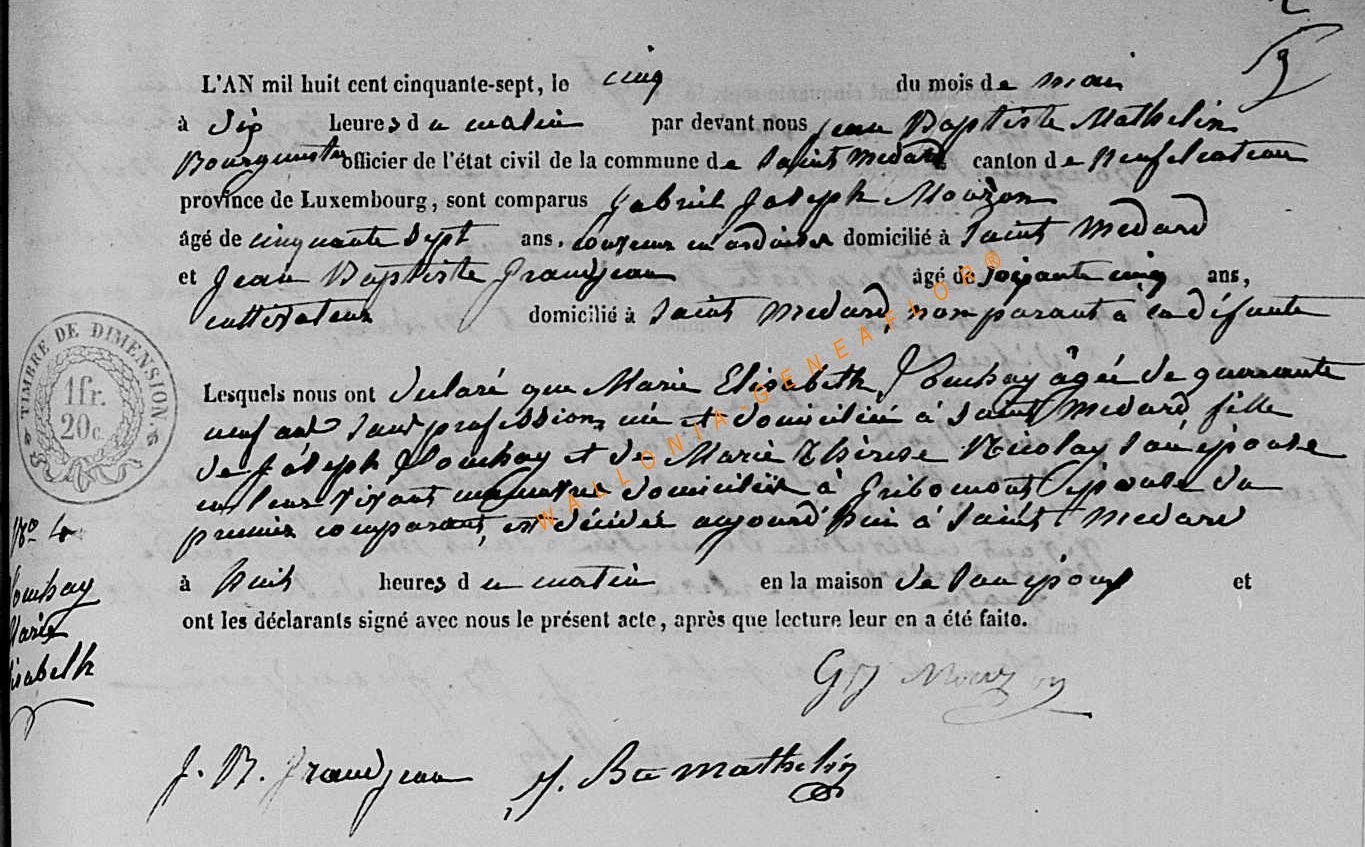 L'AN mil huit cent cinquante-sept, le cinq du mois de mai
à dix heures du matin par devant nous jean Baptiste Mathelin
Bourgmestre officier de l'état civil de la commune de Saint Medard canton de Neufchateau
province de Luxembourg, sont comparus Gabriel Joseph Mouzon
âgé de cinquante Sept ans, couvreur en ardoises domicilié à Saint Medard
et Jean Baptiste Grandjean âgé de soixante cinq ans,
cultivateur domicilié à Saint Medard, non parant à la défunte
Lesquels nous ont déclaré que Marie Elisabeth âgée de quarante
neuf ans sans profession, née et domiciliée à Saint Medard fille
de Joseph et de Marie Thérèse Nicolay son épouse
en leur vivant domiciliés à Gribomont épouse du
premier comparant, est décédée aujourd'hui à Saint Medard
à huit heures du matin en la maison de son époux et
ont les déclarants signé avec nous le présent acte, après que lecture leur en a été faite.
TIMBRE DE DIMENSION.
1 fr.
20 c.
No 4
Marie
isabeth
GJ Mouzon
J. B. Grandjean J. Bte Mathelin
WALLONIA-GENEAFLOR®